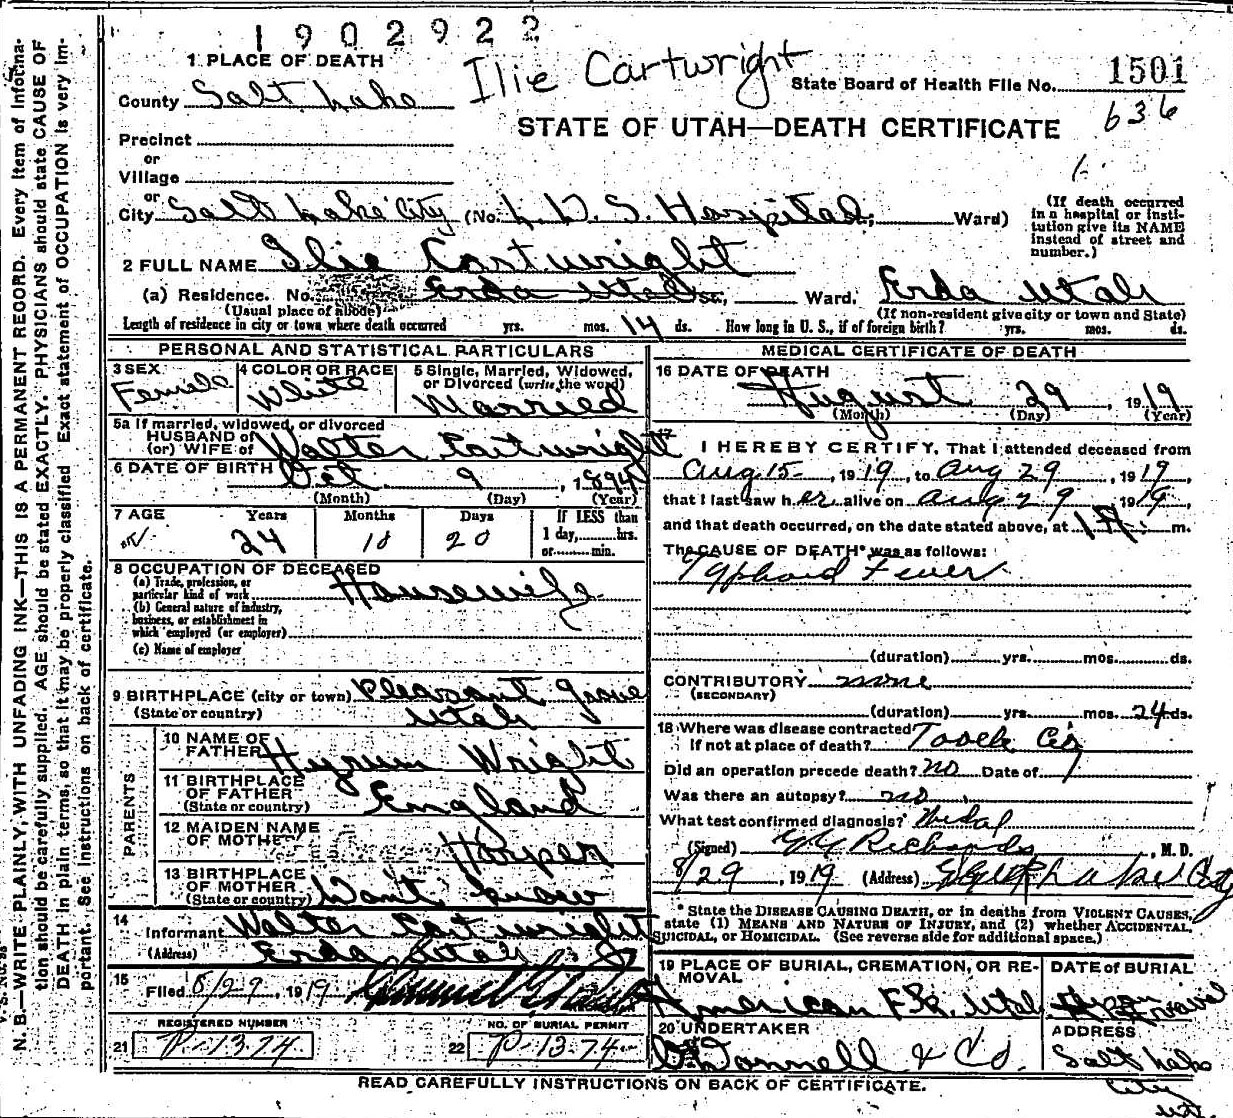 1902922
Ilie Cartwright
State Board of Health File No. 1501
636
1 PLACE OF DEATH
County Salt Lake
STATE OF UTAH—DEATH CERTIFICATE
Precinct
or
Village
or
City Salt Lake City (No. L. D. S. Hospital; Ward)
(If death occurred in a hospital or institution give its NAME instead of street and number.)
2 FULL NAME Ilie Cartwright
(a) Residence. No. Erda Utah St., Ward. Erda Utah
(Usual place of abode) (If non-resident give city or town and State)
Length of residence in city or town where death occurred yrs. mos. 14 ds. How long in U. S., if of foreign birth? yrs. mos. ds.
PERSONAL AND STATISTICAL PARTICULARS
3 SEX Female
4 COLOR OR RACE White
5 Single, Married, Widowed, or Divorced (write the word) Married
5a If married, widowed, or divorced
HUSBAND of
(or) WIFE of Walter Cartwright
6 DATE OF BIRTH Oct 9, 1894
(Month) (Day) (Year)
7 AGE Years Months Days If LESS than
24 10 20 1 day, hrs.
or min.
8 OCCUPATION OF DECEASED
(a) Trade, profession, or particular kind of work Housewife
(b) General nature of industry, business, or establishment in which employed (or employer)
(c) Name of employer
9 BIRTHPLACE (city or town) Pleasant Grove
(State or country) Utah
PARENTS
10 NAME OF FATHER Hyrum Wright
11 BIRTHPLACE OF FATHER (State or country) England
12 MAIDEN NAME OF MOTHER Harper
13 BIRTHPLACE OF MOTHER (State or country) Don't know
14
Informant Walter Cartwright
(Address) Erda Utah
15
Filed 8/29, 1919
REGISTERED NUMBER
21 P-1374
NO. OF BURIAL PERMIT
22 P-1374
MEDICAL CERTIFICATE OF DEATH
16 DATE OF DEATH
August 29, 1919
(Month) (Day) (Year)
17
I HEREBY CERTIFY, That I attended deceased from
Aug 15, 1919, to Aug 29, 1919
that I last saw her alive on Aug 29 1919,
and that death occurred, on the date stated above, at 1 A. m.
The CAUSE OF DEATH* was as follows:
Typhoid Fever
(duration) yrs. mos. ds.
CONTRIBUTORY none
(SECONDARY)
(duration) yrs. mos. 24 ds.
18 Where was disease contracted
If not at place of death? Tooele Co.
Did an operation precede death? no Date of
Was there an autopsy? no
What test confirmed diagnosis? Widal
(Signed) G G Richards, M. D.
8/29, 1919 (Address) Salt Lake City
*State the DISEASE CAUSING DEATH, or in deaths from VIOLENT CAUSES,
state (1) MEANS AND NATURE OF INJURY, and (2) whether ACCIDENTAL,
SUICIDAL, OR HOMICIDAL. (See reverse side for additional space.)
19 PLACE OF BURIAL, CREMATION, OR REMOVAL
American Fk. Utah
DATE of BURIAL
Upon Arrival
20 UNDERTAKER
O'Donnell & Co.
ADDRESS
Salt Lake City Ut.
READ CAREFULLY INSTRUCTIONS ON BACK OF CERTIFICATE.
N. B.—WRITE PLAINLY, WITH UNFADING INK—THIS IS A PERMANENT RECORD. Every item of information should be carefully supplied. AGE should be stated EXACTLY. PHYSICIANS should state CAUSE OF DEATH in plain terms, so that it may be properly classified. Exact statement of OCCUPATION is very important. See instructions on back of certificate.